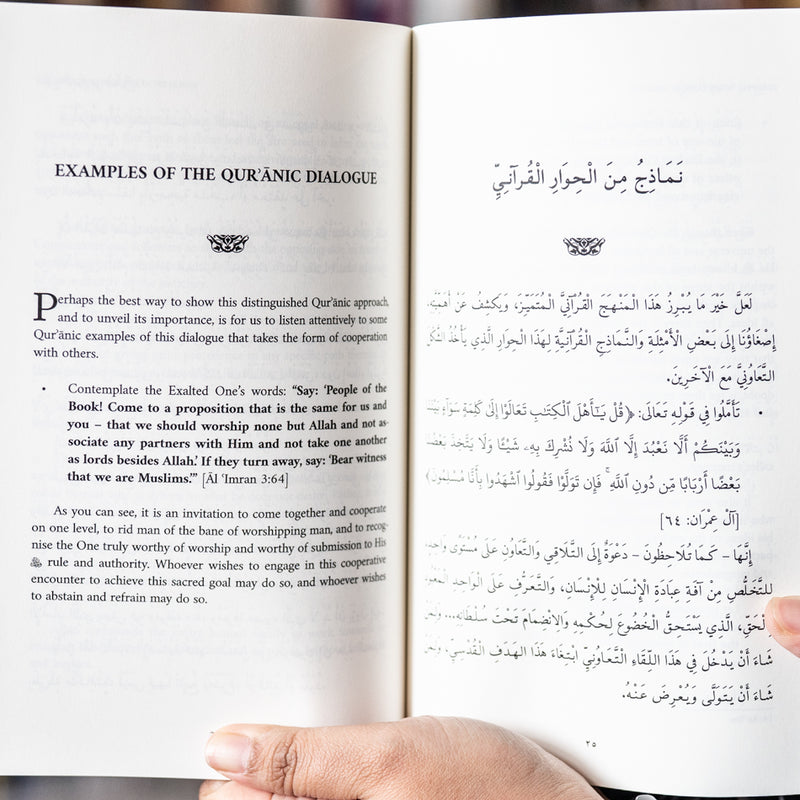 EXAMPLES OF THE QUR’ĀNIC DIALOGUE
Perhaps the best way to show this distinguished Qur’ānic approach,
and to unveil its importance, is for us to listen attentively to some
Qur’ānic examples of this dialogue that takes the form of cooperation
with others.
• Contemplate the Exalted One’s words: “Say: ‘People of the
Book! Come to a proposition that is the same for us and
you – that we should worship none but Allah and not as-
sociate any partners with Him and not take one another
as lords besides Allah.’ If they turn away, say: ‘Bear witness
that we are Muslims.’” [Āl ‘Imran 3:64]
As you can see, it is an invitation to come together and cooperate
on one level, to rid man of the bane of worshipping man, and to recog-
nise the One truly worthy of worship and worthy of submission to His
ﷻ rule and authority. Whoever wishes to engage in this cooperative
encounter to achieve this sacred goal may do so, and whoever wishes
to abstain and refrain may do so.
نَمَاذِجُ مِنَ الْحِوَارِ الْقُرْآنِيِّ
لَعَلَّ خَيْرَ مَا يُبْرِزُ هَذَا الْمَنْهَجَ الْقُرْآنِيَّ الْمُتَمَيِّزَ، وَيَكْشِفُ عَنْ أَهَمِّيَّتِهِ،
إِصْغَاؤُنَا إِلَى بَعْضِ الْأَمْثِلَةِ وَالنَّمَاذِجِ الْقُرْآنِيَّةِ لِهَذَا الْحِوَارِ الَّذِي يَأْخُذُ الشَّكْلَ
التَّعَاوُنِيَّ مَعَ الْآخَرِينَ.
• تَأَمَّلُوا فِي قَوْلِهِ تَعَالَى: ﴿قُلْ يَـٰٓأَهْلَ ٱلْكِتَـٰبِ تَعَالَوْا۟ إِلَىٰ كَلِمَةٍ سَوَآءٍۭ بَيْنَنَا
وَبَيْنَكُمْ أَلَّا نَعْبُدَ إِلَّا ٱللَّهَ وَلَا نُشْرِكَ بِهِۦ شَيْـًٔا وَلَا يَتَّخِذَ بَعْضُنَا
بَعْضًا أَرْبَابًا مِّن دُونِ ٱللَّهِ ۚ فَإِن تَوَلَّوْا۟ فَقُولُوا۟ ٱشْهَدُوا۟ بِأَنَّا مُسْلِمُونَ﴾
[آل عِمْرَان: ٦٤]
إِنَّهَا – كَمَا تُلَاحِظُونَ – دَعْوَةٌ إِلَى التَّلَاقِي وَالتَّعَاوُنِ عَلَى مُسْتَوًى وَاحِدٍ
لِلتَّخَلُّصِ مِنْ آفَةِ عِبَادَةِ الْإِنْسَانِ لِلْإِنْسَانِ، وَالتَّعَرُّفِ عَلَى الْوَاحِدِ
الْحَقِّ، الَّذِي يَسْتَحِقُّ الْخُضُوعَ لِحُكْمِهِ وَالِانْضِمَامَ تَحْتَ سُلْطَانِهِ...
شَاءَ أَنْ يَدْخُلَ فِي هَذَا اللِّقَاءِ التَّعَاوُنِيِّ ابْتِغَاءَ هَذَا الْهَدَفِ الْقُدْسِيِّ،
شَاءَ أَنْ يَتَوَلَّى وَيُعْرِضَ عَنْهُ.
٢٥